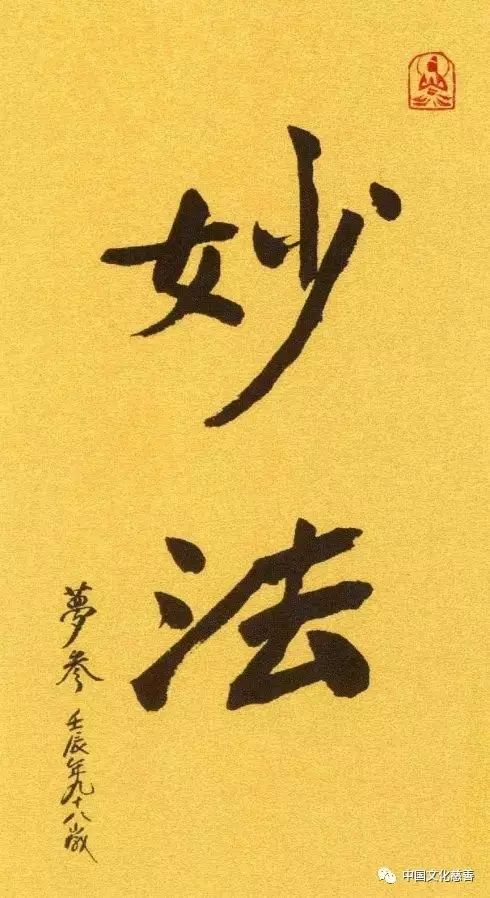 妙法
夢参 壬辰年九十八歲
中国文化慈善